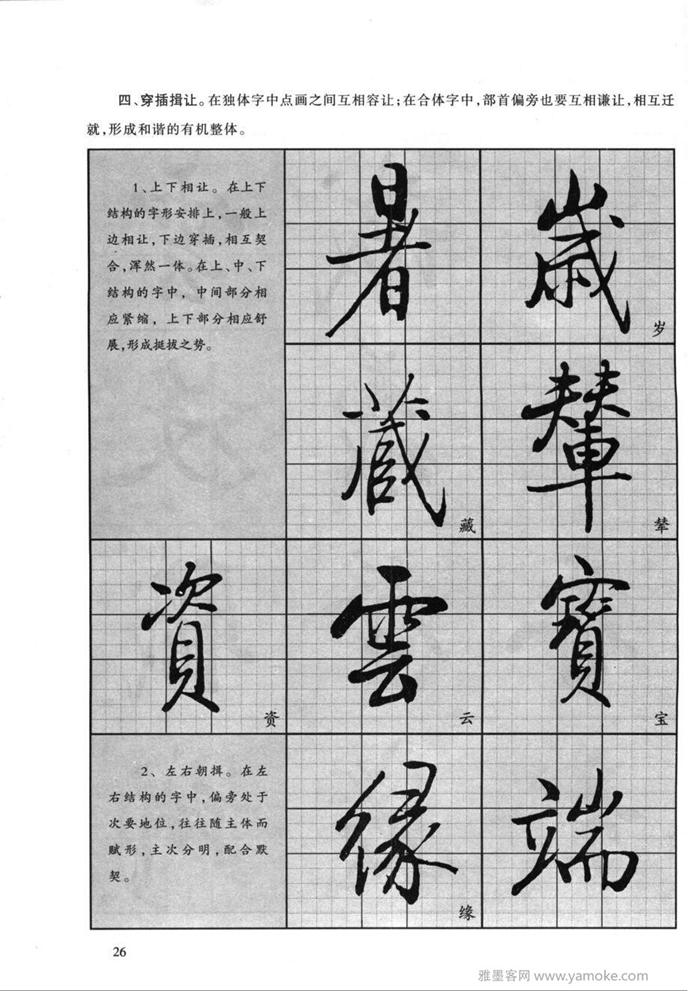 四、穿插揖让。在独体字中点画之间互相容让；在合体字中，部首偏旁也要互相谦让，相互迁
就，形成和谐的有机整体。
1、上下相让。在上下
结构的字形安排上，一般上
边相让，下边穿插，相互契
合，浑然一体。在上、中、下
结构的字中，中间部分相
应紧缩，上下部分相应舒
展，形成挺拔之势。
暑
歲
岁
藏
藏
輦
辇
資
资
雲
云
寶
宝
2、左右朝揖。在左
右结构的字中，偏旁处于
次要地位，往往随主体而
赋形，主次分明，配合默
契。
緣
缘
端
26
雅墨客网 www.yamoke.com